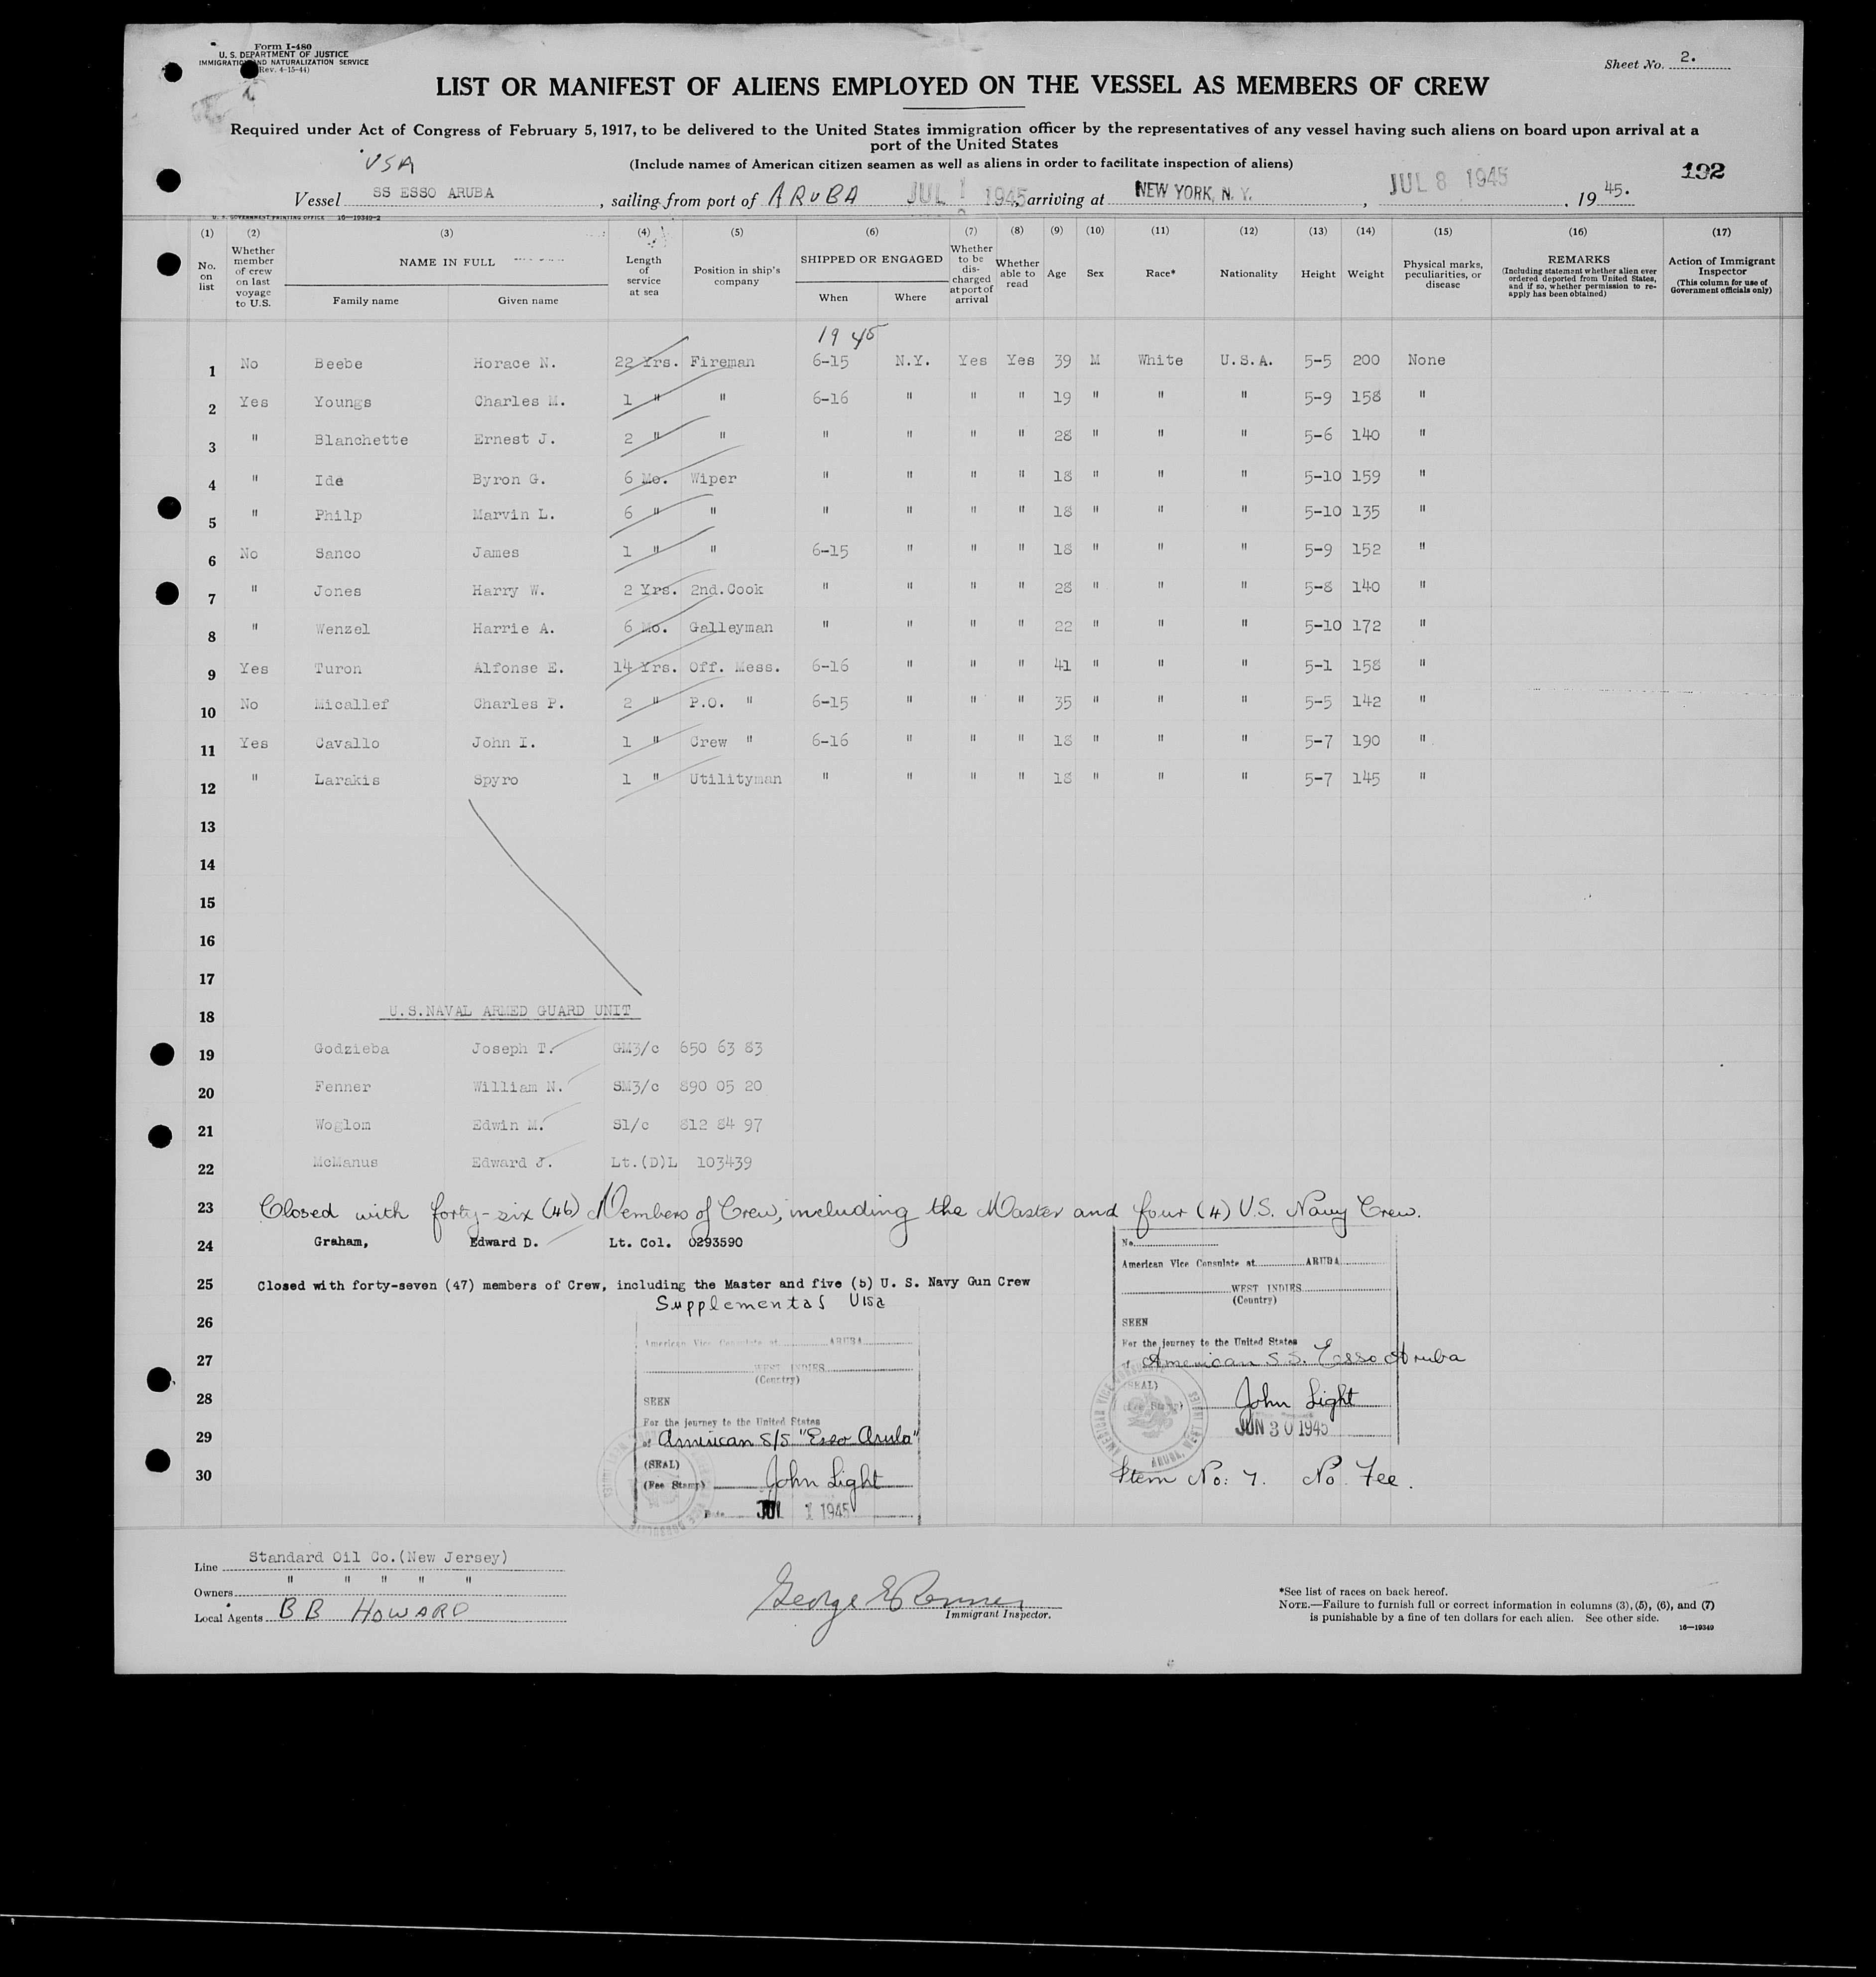 Form I-480
U. S. DEPARTMENT OF JUSTICE
IMMIGRATION AND NATURALIZATION SERVICE
(Rev. 4-15-44)
Sheet No. 2.
LIST OR MANIFEST OF ALIENS EMPLOYED ON THE VESSEL AS MEMBERS OF CREW
Required under Act of Congress of February 5, 1917, to be delivered to the United States immigration officer by the representatives of any vessel having such aliens on board upon arrival at a
port of the United States
(Include names of American citizen seamen as well as aliens in order to facilitate inspection of aliens)
USA
192
Vessel SS ESSO ARUBA, sailing from port of ARUBA JUL 1 1945, arriving at NEW YORK, N. Y., JUL 8 1945, 19 45.
U. S. GOVERNMENT PRINTING OFFICE 16—19349-2
(1) (2) (3) (4) (5) (6) (7) (8) (9) (10) (11) (12) (13) (14) (15) (16) (17)
No. on list
Whether member of crew on last voyage to U.S.
NAME IN FULL
Family name Given name
Length of service at sea
Position in ship's company
SHIPPED OR ENGAGED
When Where
Whether to be discharged at port of arrival
Whether able to read
Age
Sex
Race*
Nationality
Height
Weight
Physical marks, peculiarities, or disease
REMARKS
(Including statement whether alien ever ordered deported from United States, and if so, whether permission to re-apply has been obtained)
Action of Immigrant Inspector
(This column for use of Government officials only)
1945
1 No Beebe Horace N. 22 Yrs. Fireman 6-15 N.Y. Yes Yes 39 M White U.S.A. 5-5 200 None
2 Yes Youngs Charles M. 1 " " 6-16 " " " 19 " " " 5-9 158 "
3 " Blanchette Ernest J. 2 " " " " " " 28 " " " 5-6 140 "
4 " Ide Byron G. 6 Mo. Wiper " " " " 18 " " " 5-10 159 "
5 " Philp Marvin L. 6 " " " " " " 18 " " " 5-10 135 "
6 No Sanco James 1 " " 6-15 " " " 18 " " " 5-9 152 "
7 " Jones Harry W. 2 Yrs. 2nd.Cook " " " " 28 " " " 5-8 140 "
8 " Wenzel Harrie A. 6 Mo. Galleyman " " " " 22 " " " 5-10 172 "
9 Yes Turon Alfonse E. 14 Yrs. Off. Mess. 6-16 " " " 41 " " " 5-1 158 "
10 No Micallef Charles P. 2 " P.O. " 6-15 " " " 35 " " " 5-5 142 "
11 Yes Cavallo John I. 1 " Crew " 6-16 " " " 18 " " " 5-7 190 "
12 " Larakis Spyro 1 " Utilityman " " " " 18 " " " 5-7 145 "
13
14
15
16
17
18 U.S.NAVAL ARMED GUARD UNIT
19 Godzieba Joseph T. GM3/c 650 63 83
20 Fenner William N. SM3/c 890 05 20
21 Woglom Edwin M. S1/c 812 84 97
22 McManus Edward J. Lt.(D)L 103439
23 Closed with forty-six (46) Members of Crew, including the Master and four (4) U.S. Navy Crew.
24 Graham, Edward D. Lt. Col. 0293590
25 Closed with forty-seven (47) members of Crew, including the Master and five (5) U. S. Navy Gun Crew
26
27
28
29
30
Supplemental Visa
American Vice Consulate at ARUBA
WEST INDIES
(Country)
SEEN
For the journey to the United States
of American S/S "Esso Aruba"
(SEAL)
(Fee Stamp) John Light
Date JUL 1 1945
No.
American Vice Consulate at ARUBA
WEST INDIES
(Country)
SEEN
For the journey to the United States
of American S.S. Esso Aruba
(SEAL)
(Fee Stamp) John Light
JUN 30 1945
Item No: 7. No Fee.
Line Standard Oil Co.(New Jersey)
Owners " " " " "
Local Agents B B HOWARD
Immigrant Inspector.
*See list of races on back hereof.
NOTE.—Failure to furnish full or correct information in columns (3), (5), (6), and (7)
is punishable by a fine of ten dollars for each alien. See other side.
16—19349